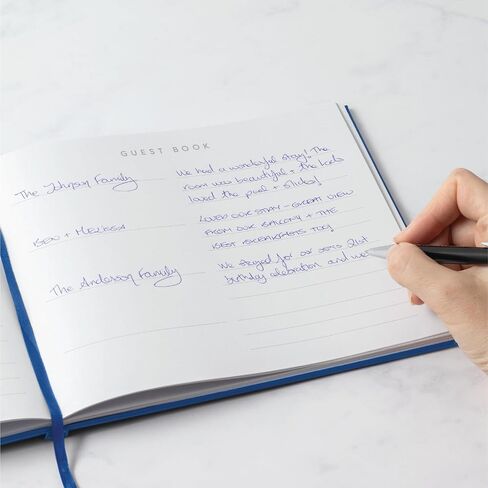 GUEST BOOK
The Johnson Family
We had a wonderful stay! The
room was beautiful + the kids
loved the pool + slides!
BEN + MELISSA
LOVED OUR STAY - GREAT VIEW
FROM OUR BALCONY + THE
BEST BREAKFASTS TOO!
The Anderson Family
We stayed for our sons 21st
birthday celebration and